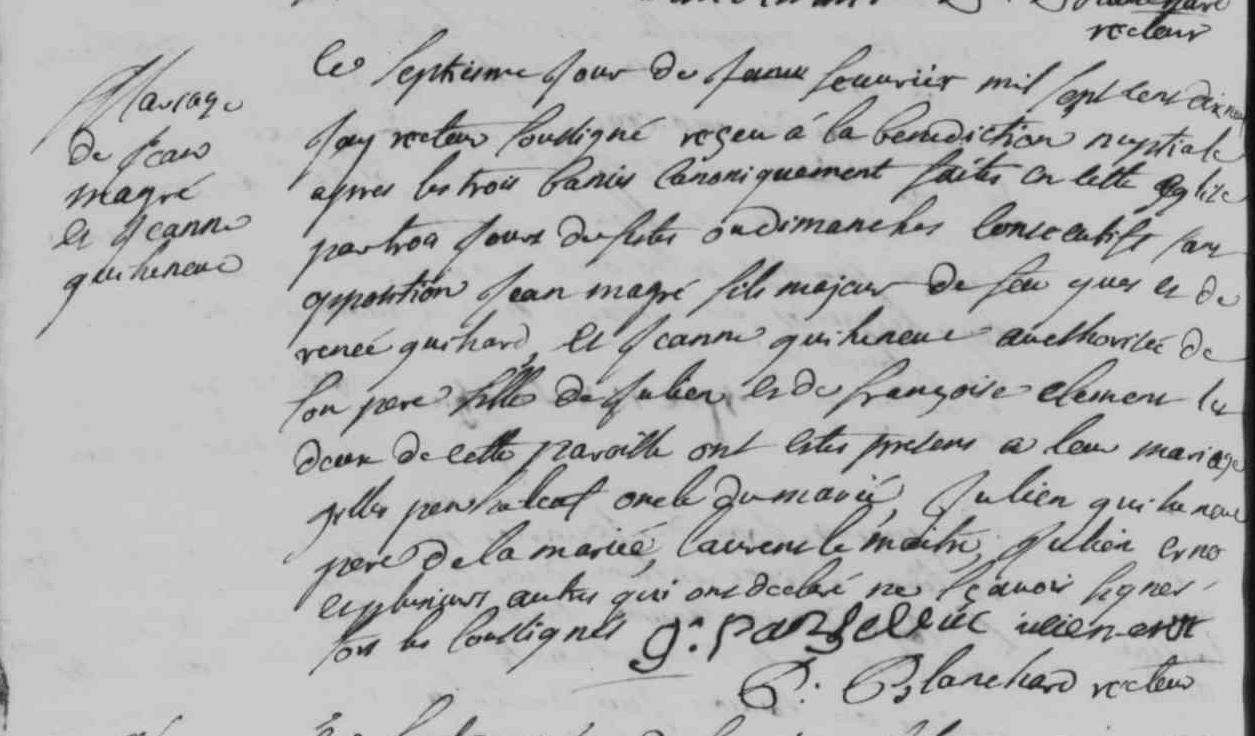 recteur
Mariage
de Jean
magré
et Jeanne
quiheneuc
Le septiesme jour de feuvrier mil sept cent dix neuf
Jay recteur soussigné reçeu á la benediction nuptiale
apres les trois banies canoniquement faites en cette eglize
par trois jours de festes ou dimanches consecutifs sans
opposition Jean magré fils majeur de feu yves et de
renée guihard, et Jeanne quiheneuc authorisée de
son pere fille de Julien et de françoise clement les
deux de cette paroisse ont estes presens a leur mariage
gilles oncle du marié, Julien quiheneuc
pere de la mariée, laurens le maitre, Julien erno
et plusieurs autres qui ont declaré ne sçavoir signer
fors les soussignés g. julien
P. Blanchard recteur